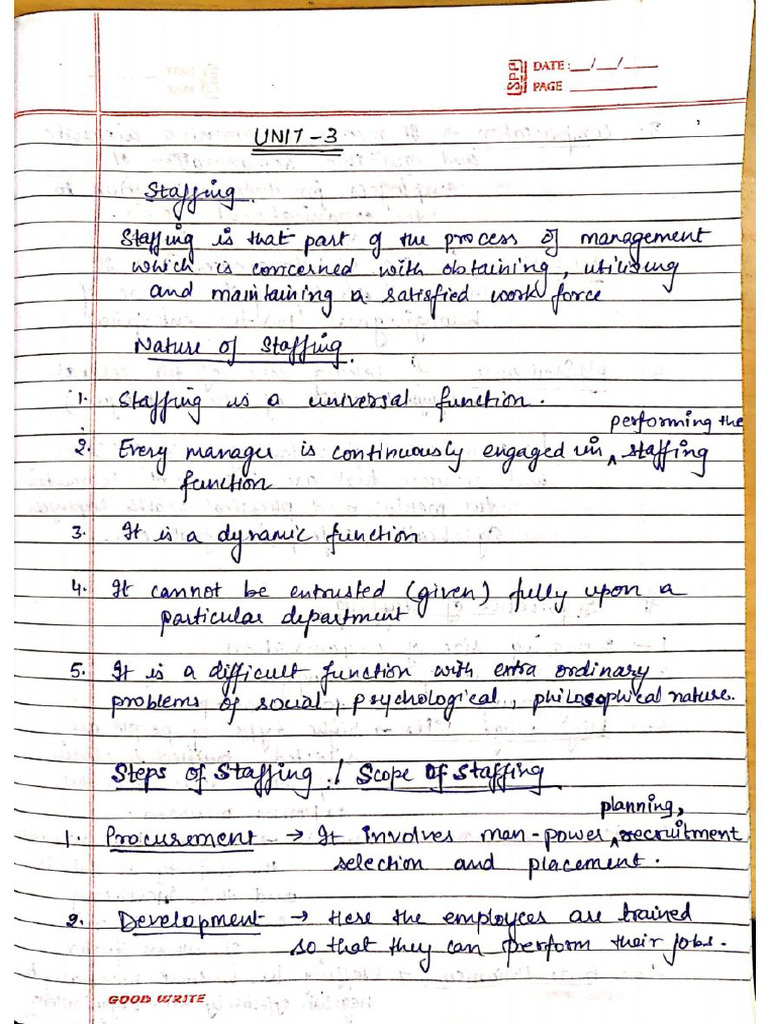 SPP DATE: __/__/____
PAGE ______
UNIT-3
Staffing.
Staffing is that part of the process of management
which is concerned with obtaining, utilising
and maintaining a satisfied work force
Nature of Staffing.
1. Staffing is a universal function.
performing the
2. Every manager is continuously engaged in ^ staffing
function
3. It is a dynamic function
4. It cannot be entrusted (given) fully upon a
particular department
5. It is a difficult function with extra ordinary
problems of social, psychological, philosophical nature.
Steps of Staffing / Scope of Staffing
planning,
1. Procurement → It involves man-power ^ recruitment
selection and placement.
2. Development → Here the employees are trained
so that they can preform their jobs.
GOOD WRITE